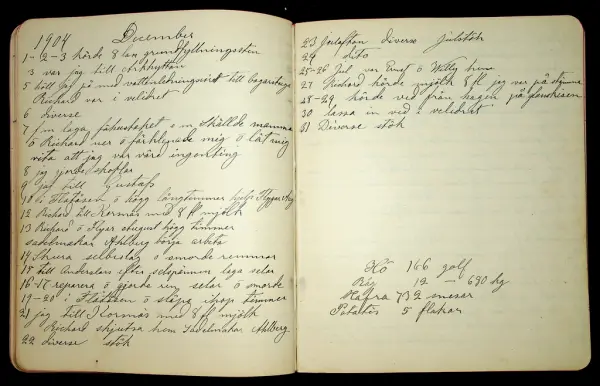 1904 December
1-2-3 körde 8 lass grundfyllningssten
3 var jag till
5 höll jag på med vattenledningsröret till
Richard var i velidret
6 diverse
7 f m laga fähustaket e m skällde mamma
ö Richard ner ö förklenade mig ö lät mig
veta att jag var värd ingenting
8 jag gjorde skoflar
9 jag till Gustafs
10 i Flatåsen ö högg långtimmer
12 Richard till Kornäs med 8 fl mjölk
13 Richard ö Flyar August högg timmer
sadelmakar Ahlberg börja arbeta
14 Skura selbeslag ö smorde remmar
15 till Anderslars efter selspännen laga selar
16-17 reparera ö gjorde ren selar ö smorde
19-20 i Flatåsen ö släpa ihop timmer
21 jag till Kornäs med 8 fl mjölk
Richard skjutsa hem Sadelmakar Ahlberg
22 diverse stök
23 julafton diverse julstök
24 dito
25-26 Jul var Ernst ö Willy hem
27 Richard körde mjölk 8 fl jag var på
28-29 körde ved från hagen på
30 lassa in ved i velidret
31 Diverse stök
Hö 166 golf
Råg 12 — 690 kg
Hafra 732 mesar
Potatis 5 flakar